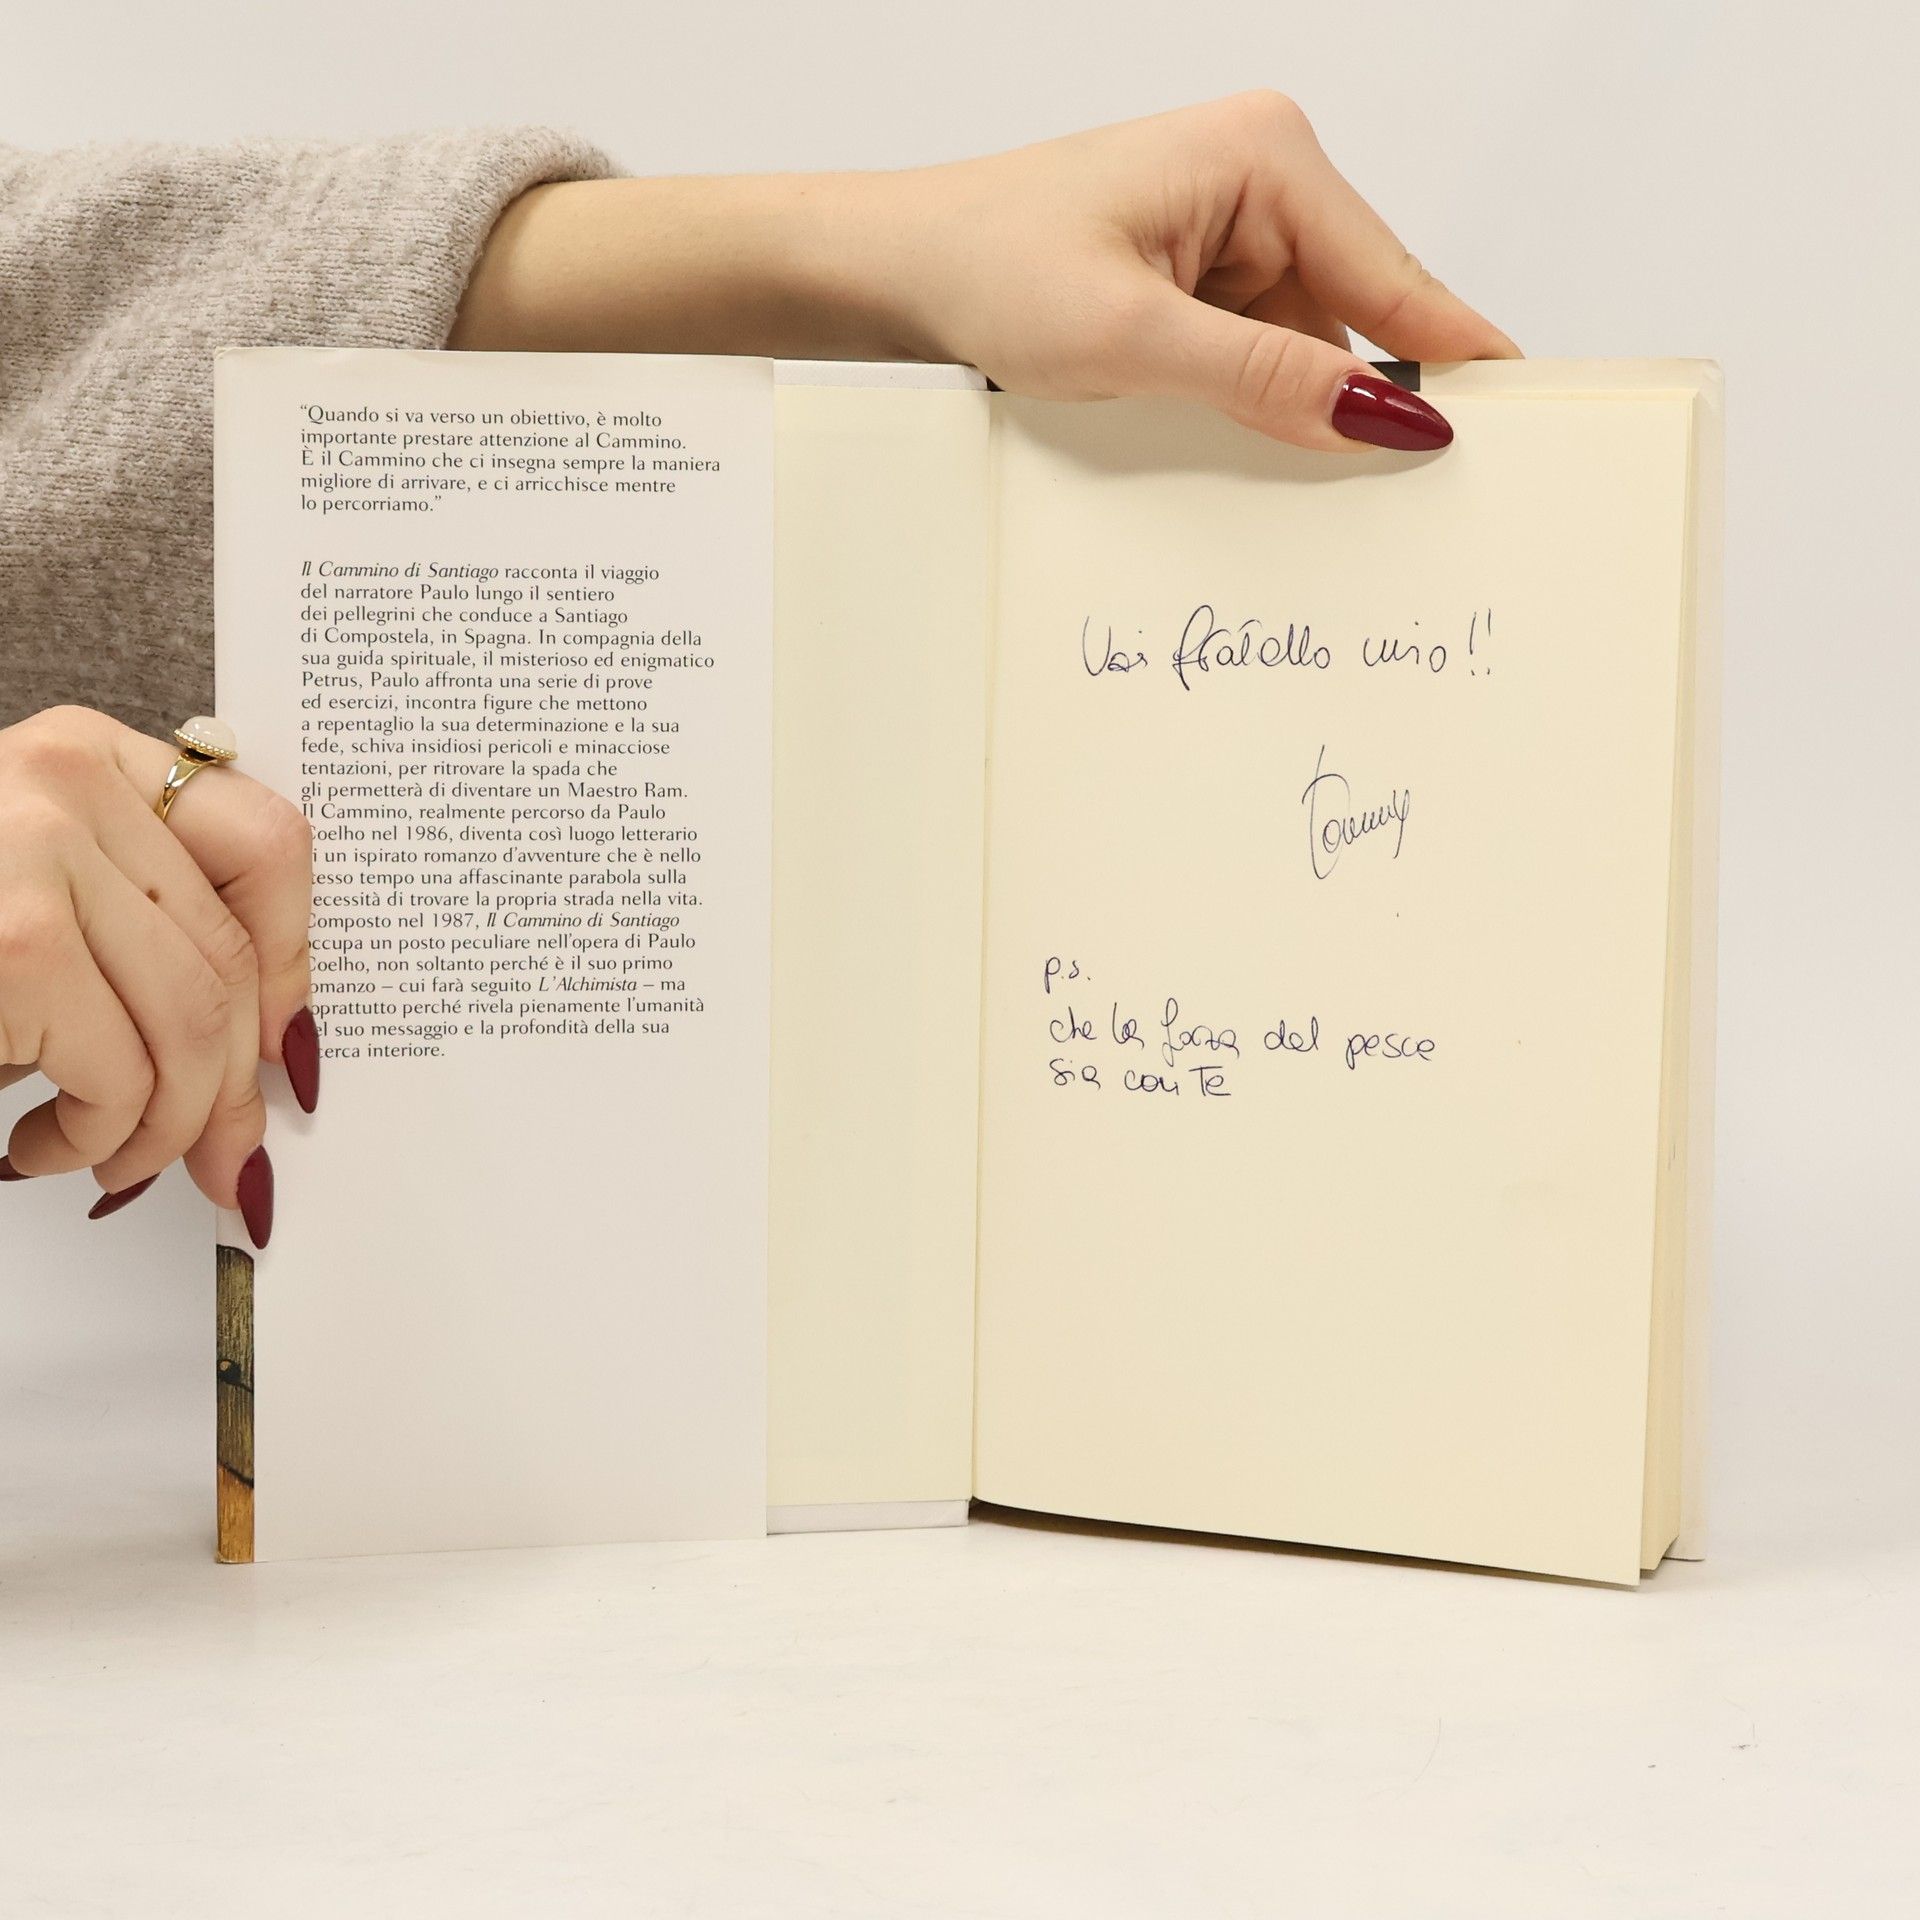 “Quando si va verso un obiettivo, è molto
importante prestare attenzione al Cammino.
È il Cammino che ci insegna sempre la maniera
migliore di arrivare, e ci arricchisce mentre
lo percorriamo.”
Il Cammino di Santiago racconta il viaggio
del narratore Paulo lungo il sentiero
dei pellegrini che conduce a Santiago
di Compostela, in Spagna. In compagnia della
sua guida spirituale, il misterioso ed enigmatico
Petrus, Paulo affronta una serie di prove
ed esercizi, incontra figure che mettono
a repentaglio la sua determinazione e la sua
fede, schiva insidiosi pericoli e minacciose
tentazioni, per ritrovare la spada che
gli permetterà di diventare un Maestro Ram.
Il Cammino, realmente percorso da Paulo
Coelho nel 1986, diventa così luogo letterario
di un ispirato romanzo d’avventure che è nello
stesso tempo una affascinante parabola sulla
necessità di trovare la propria strada nella vita.
Composto nel 1987, Il Cammino di Santiago
occupa un posto peculiare nell’opera di Paulo
Coelho, non soltanto perché è il suo primo
romanzo – cui farà seguito L’Alchimista – ma
soprattutto perché rivela pienamente l’umanità
del suo messaggio e la profondità della sua
ricerca interiore.
Vai fratello mio!!
p.s.
che la forza del pesce
sia con te